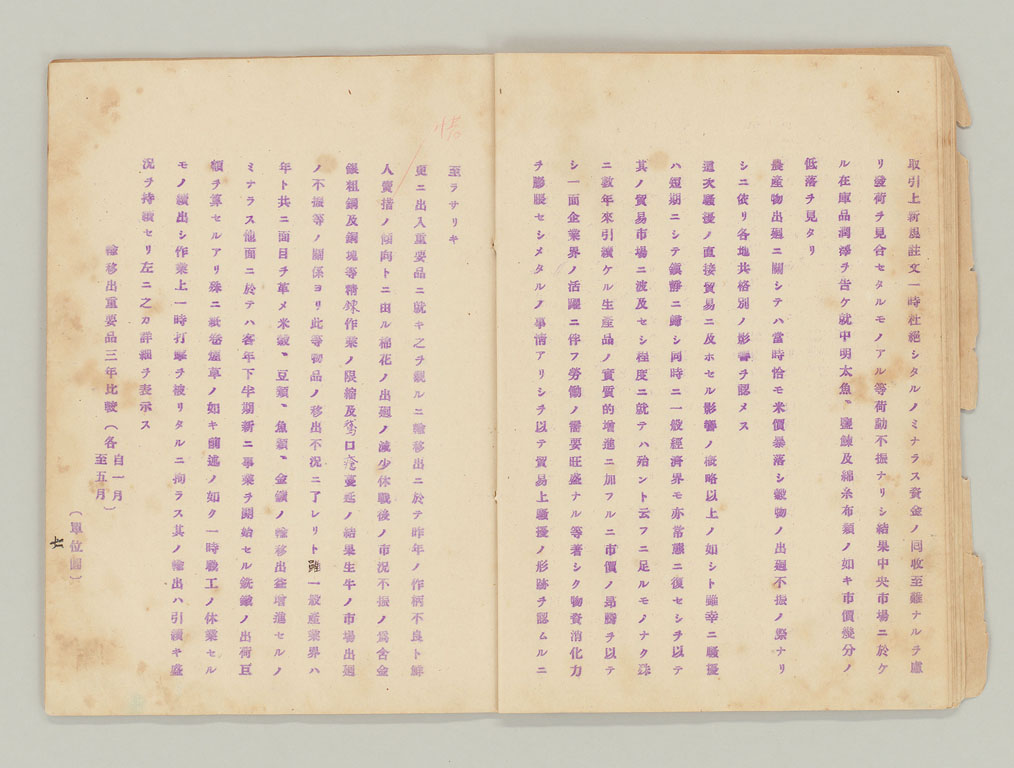 取引上新規註文一時杜絶シタルノミナラス資金ノ囘收至難ナルヲ慮
リ發荷ヲ見合セタルモノアル等荷動不振ナリシ結果中央市場ニ於ケ
ル在庫品潤澤ヲ告ケ就中明太魚、鹽鰊及綿糸布類ノ如キ市價幾分ノ
低落ヲ見タリ
農産物出廻ニ關シテハ當時恰モ米價暴落シ穀物ノ出廻不振ノ際ナリ
シニ依リ各地共格別ノ影響ヲ認メス
這次騷擾ノ直接貿易ニ及ホセル影響ノ概略以上ノ如シト雖幸ニ騷擾
ハ短期ニシテ鎭靜ニ歸シ同時ニ一般經濟界モ亦常態ニ復セシヲ以テ
其ノ貿易市場ニ波及セシ程度ニ就テハ殆ント云フニ足ルモノナク殊
ニ數年來引續ケル生産品ノ實質的增進ニ加フルニ市價ノ昂騰ヲ以テ
シ一面企業界ノ活躍ニ伴フ勞働ノ需要旺盛ナル等著シク物資消化力
ヲ膨脹セシメタルノ事情アリシヲ以テ貿易上騷擾ノ形跡ヲ認ムルニ
至ラサリキ
更ニ出入重要品ニ就キ之ヲ觀ルニ輸移出ニ於テ昨年ノ作柄不良ト鮮
人賣惜ノ傾向トニ由ル棉花ノ出廻ノ減少休戰後ノ市況不振ノ爲含金
銀粗銅及銅塊等精錬作業ノ限縮及鵞口瘡蔓延ノ結果生牛ノ市場出廻
ノ不振等ノ關係ヨリ此等物品ノ移出不況ニ了レリト雖一般産業界ハ
年ト共ニ面目ヲ革メ米穀、豆類、魚類、金鑛ノ輸移出益增進セルノ
ミナラス他面ニ於テハ客年下半期新ニ事業ヲ開始セル銑鐵ノ出荷巨
額ヲ算セルアリ殊ニ紙卷煙草ノ如キ前述ノ如ク一時職工ノ休業セル
モノ續出シ作業上一時打擊ヲ被リタルニ拘ラス其ノ輸出ハ引續キ盛
況ヲ持續セリ左ニ之カ詳細ヲ表示ス
輸移出重要品三年比較(各自一月至五月)
(單位圓)